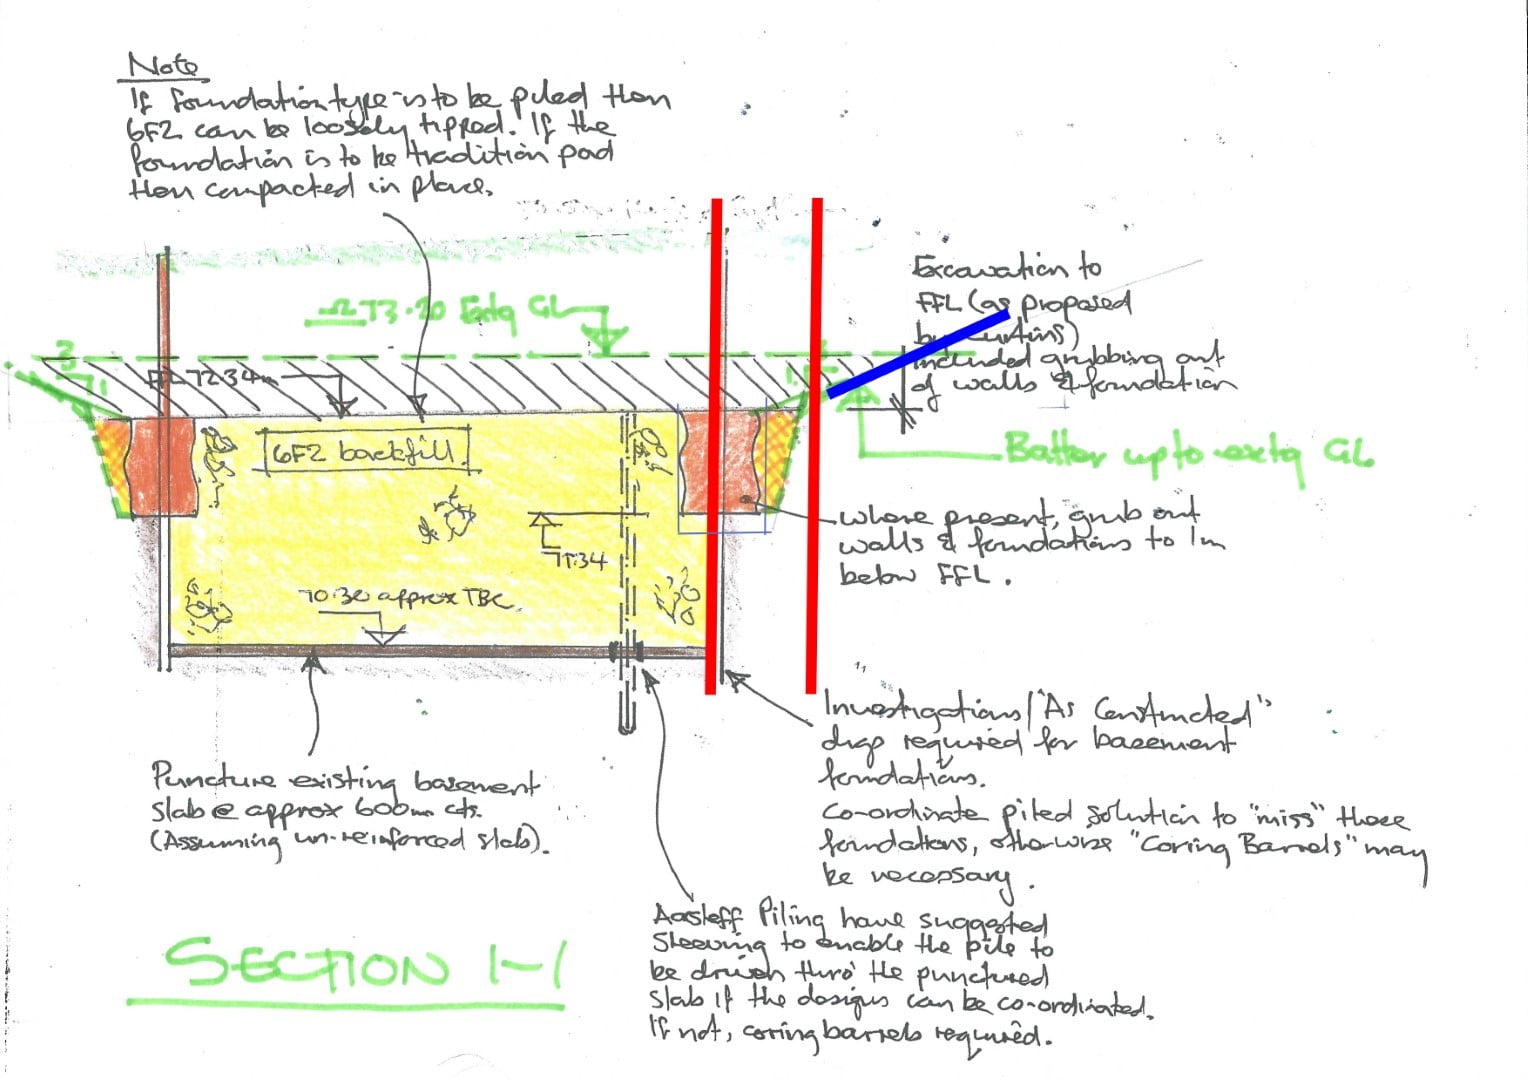 Note
If foundation type is to be piled then
6F2 can be loosely tipped. If the
foundation is to be tradition pad
then compacted in place.
73.20 Extg GL
FFL 72.34m
3
1
6F2 backfill
71.34
70.30 approx TBC.
Excavation to
FFL (as proposed
by Curtins)
included grubbing out
of walls & foundation
Batter up to extg GL
where present, grub out
walls & foundations to 1m
below FFL.
Investigations/"As Constructed"
drgs required for basement
foundations.
Co-ordinate piled solution to "miss" these
foundations, otherwise "Coring Barrels" may
be necessary.
Puncture existing basement
slab @ approx 600mm cts.
(Assuming un-reinforced slab).
Aarsleff Piling have suggested
sleeving to enable the pile to
be driven thro' the punctured
slab if the designs can be co-ordinated.
If not, coring barrels required.
SECTION 1-1